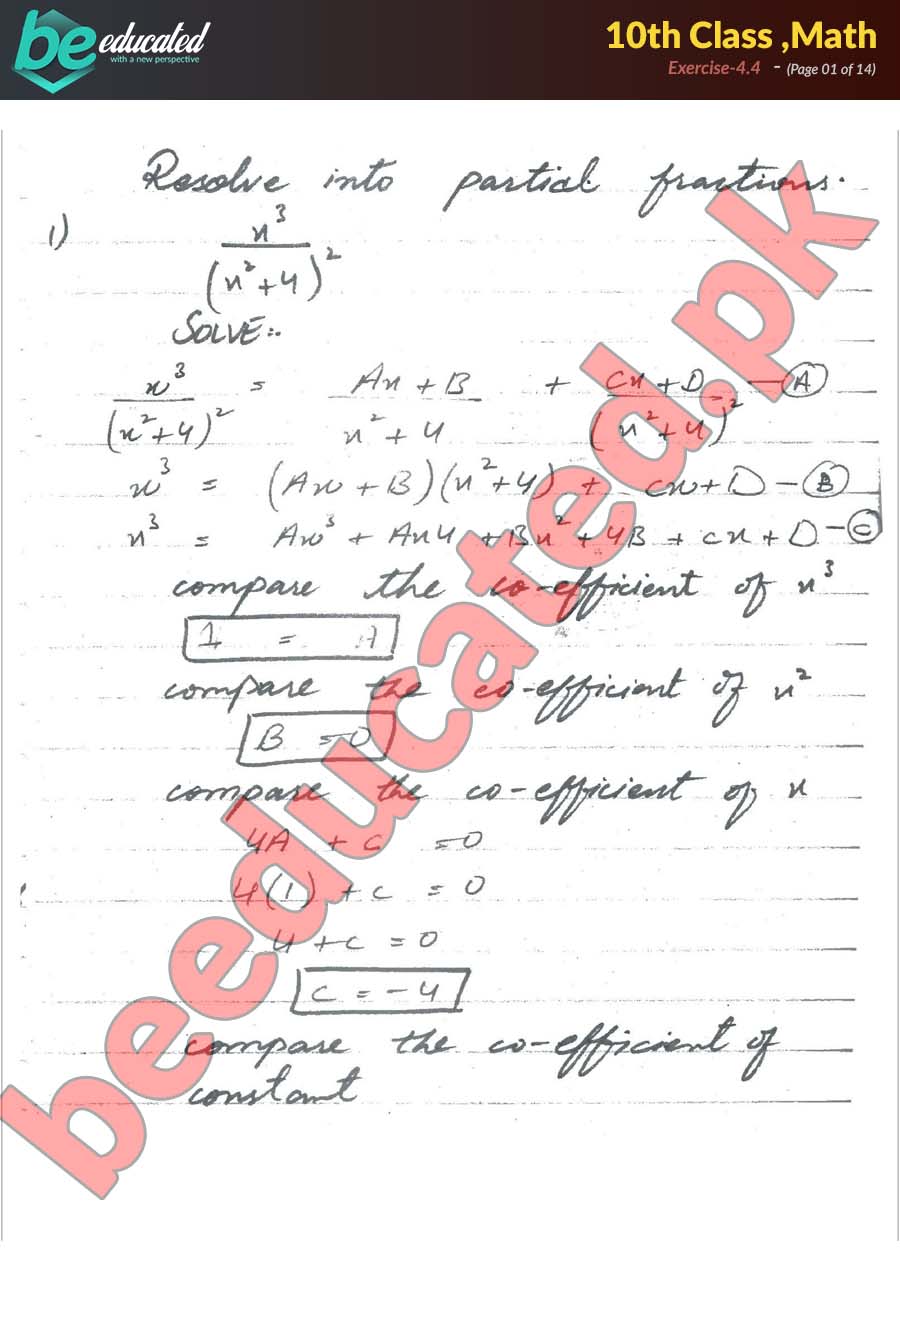 be educated
with a new perspective
10th Class ,Math
Exercise-4.4 - (Page 01 of 14)
Resolve into partial fractions.
1) x³
(x²+4)²
SOLVE:-
x³ = Ax + B + Cx + D — (A)
(x²+4)² x² + 4 (x²+4)²
x³ = (Ax + B)(x²+4) + cx + D — (B)
x³ = Ax³ + Ax4 + Bx² + 4B + cx + D — (C)
compare the co-efficient of x³
1 = A
compare the co-efficient of x²
B = 0
compare the co-efficient of x
4A + c = 0
4(1) + c = 0
4 + c = 0
c = -4
compare the co-efficient of
constant
beeducated.pk